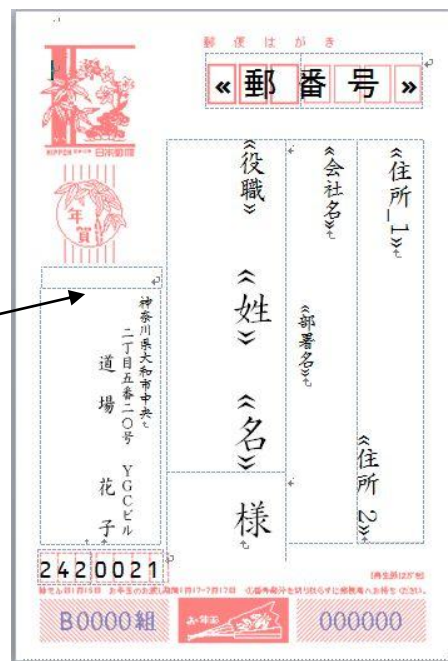 郵便はがき
«郵番号»
NIPPON 日本郵便
年賀
«住所_1»
«住所 2»
«会社名»
«部署名»
«役職»
«姓» «名»
様
神奈川県大和市中央
二丁目五番二〇号 YGCビル
道場 花子
2420021
B0000組
お年玉
000000